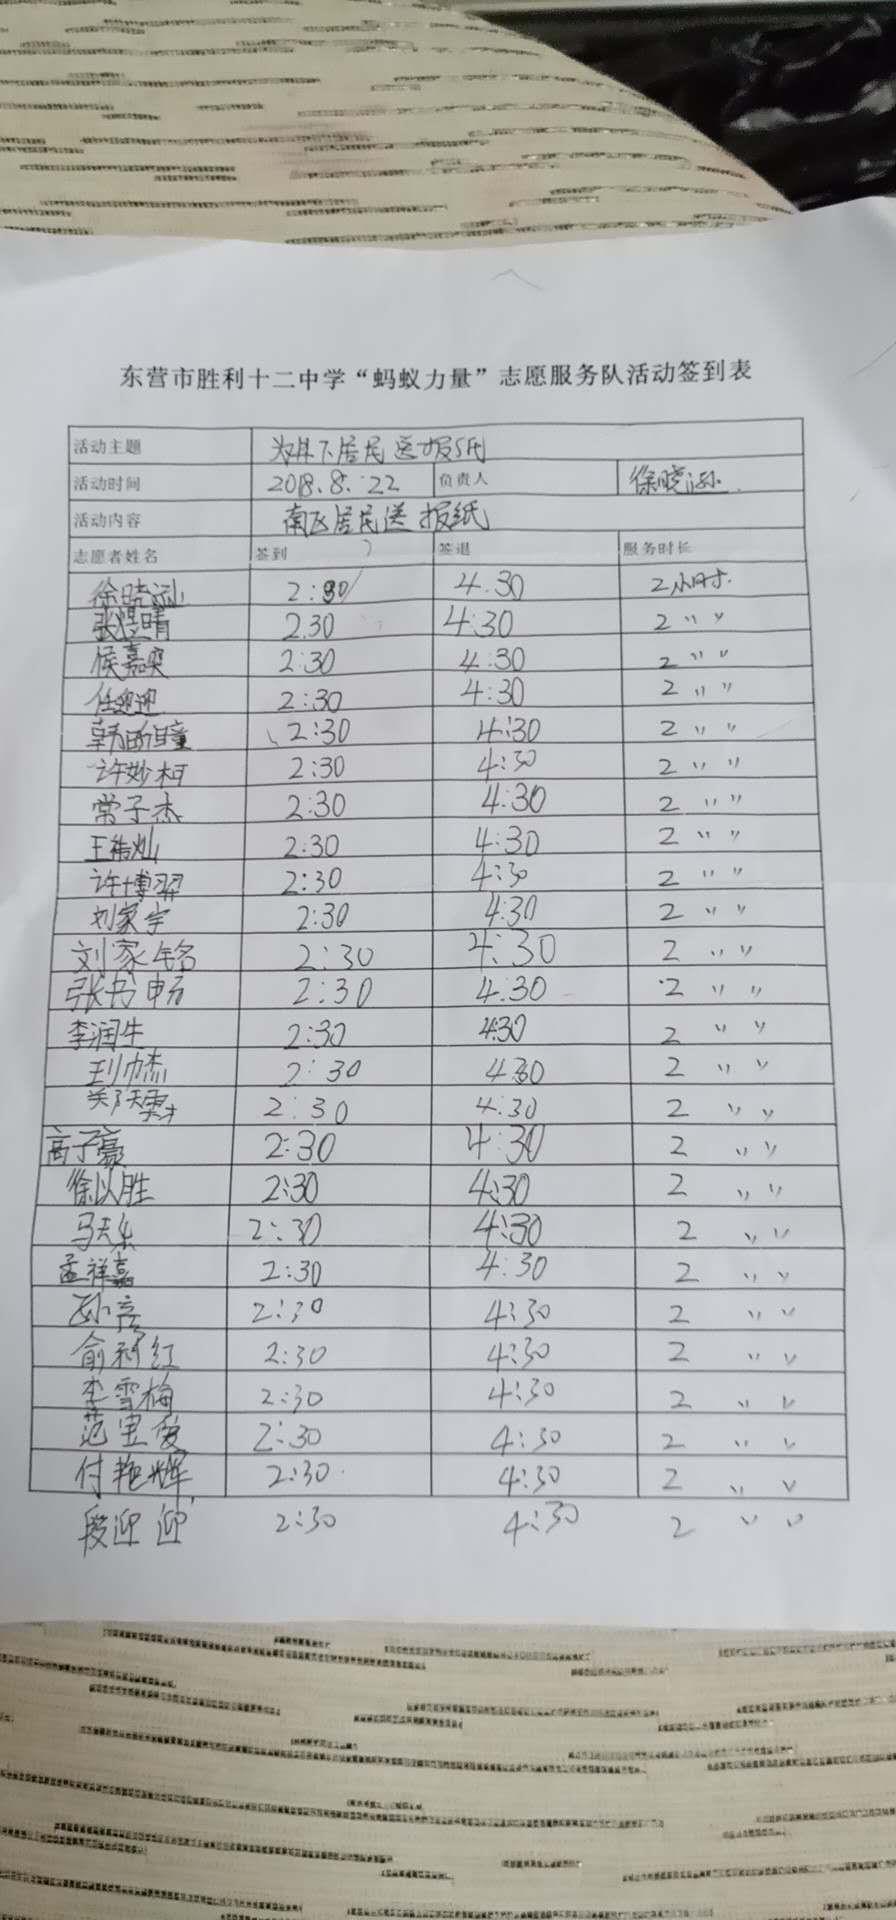 东营市胜利十二中学“蚂蚁力量”志愿服务队活动签到表
活动主题 居民送报纸
活动时间 2018.8.22 负责人 徐晓
活动内容 南区居民送报纸
志愿者姓名 签到 签退 服务时长
徐晓 2:30 4.30 2小时.
张煜晴 2.30 4:30 2 〃 〃
侯嘉奕 2:30 4:30 2 〃 〃
任迎迎 2:30 4:30 2 〃 〃
韩 2:30 4:30 2 〃 〃
许妙柯 2:30 4:30 2 〃 〃
常子杰 2:30 4:30 2 〃 〃
王祎灿 2:30 4:30 2 〃 〃
许博羿 2:30 4:30 2 〃 〃
刘家宇 2:30 4:30 2 〃 〃
刘家铭 2:30 4:30 2 〃 〃
张书畅 2:30 4.30 2 〃 〃
李润生 2:30 4:30 2 〃 〃
2:30 4:30 2 〃 〃
郑天 2:30 4:30 2 〃 〃
高子豪 2:30 4:30 2 〃 〃
徐以胜 2:30 4:30 2 〃 〃
马天乐 2:30 4:30 2 〃 〃
孟祥嘉 2:30 4:30 2 〃 〃
孙 2:30 4:30 2 〃 〃
俞 红 2:30 4:30 2 〃 〃
李雪梅 2:30 4:30 2 〃 〃
范 2:30 4:30 2 〃 〃
付艳辉 2:30 4:30 2 〃 〃
段迎迎 2:30 4:30 2 〃 〃